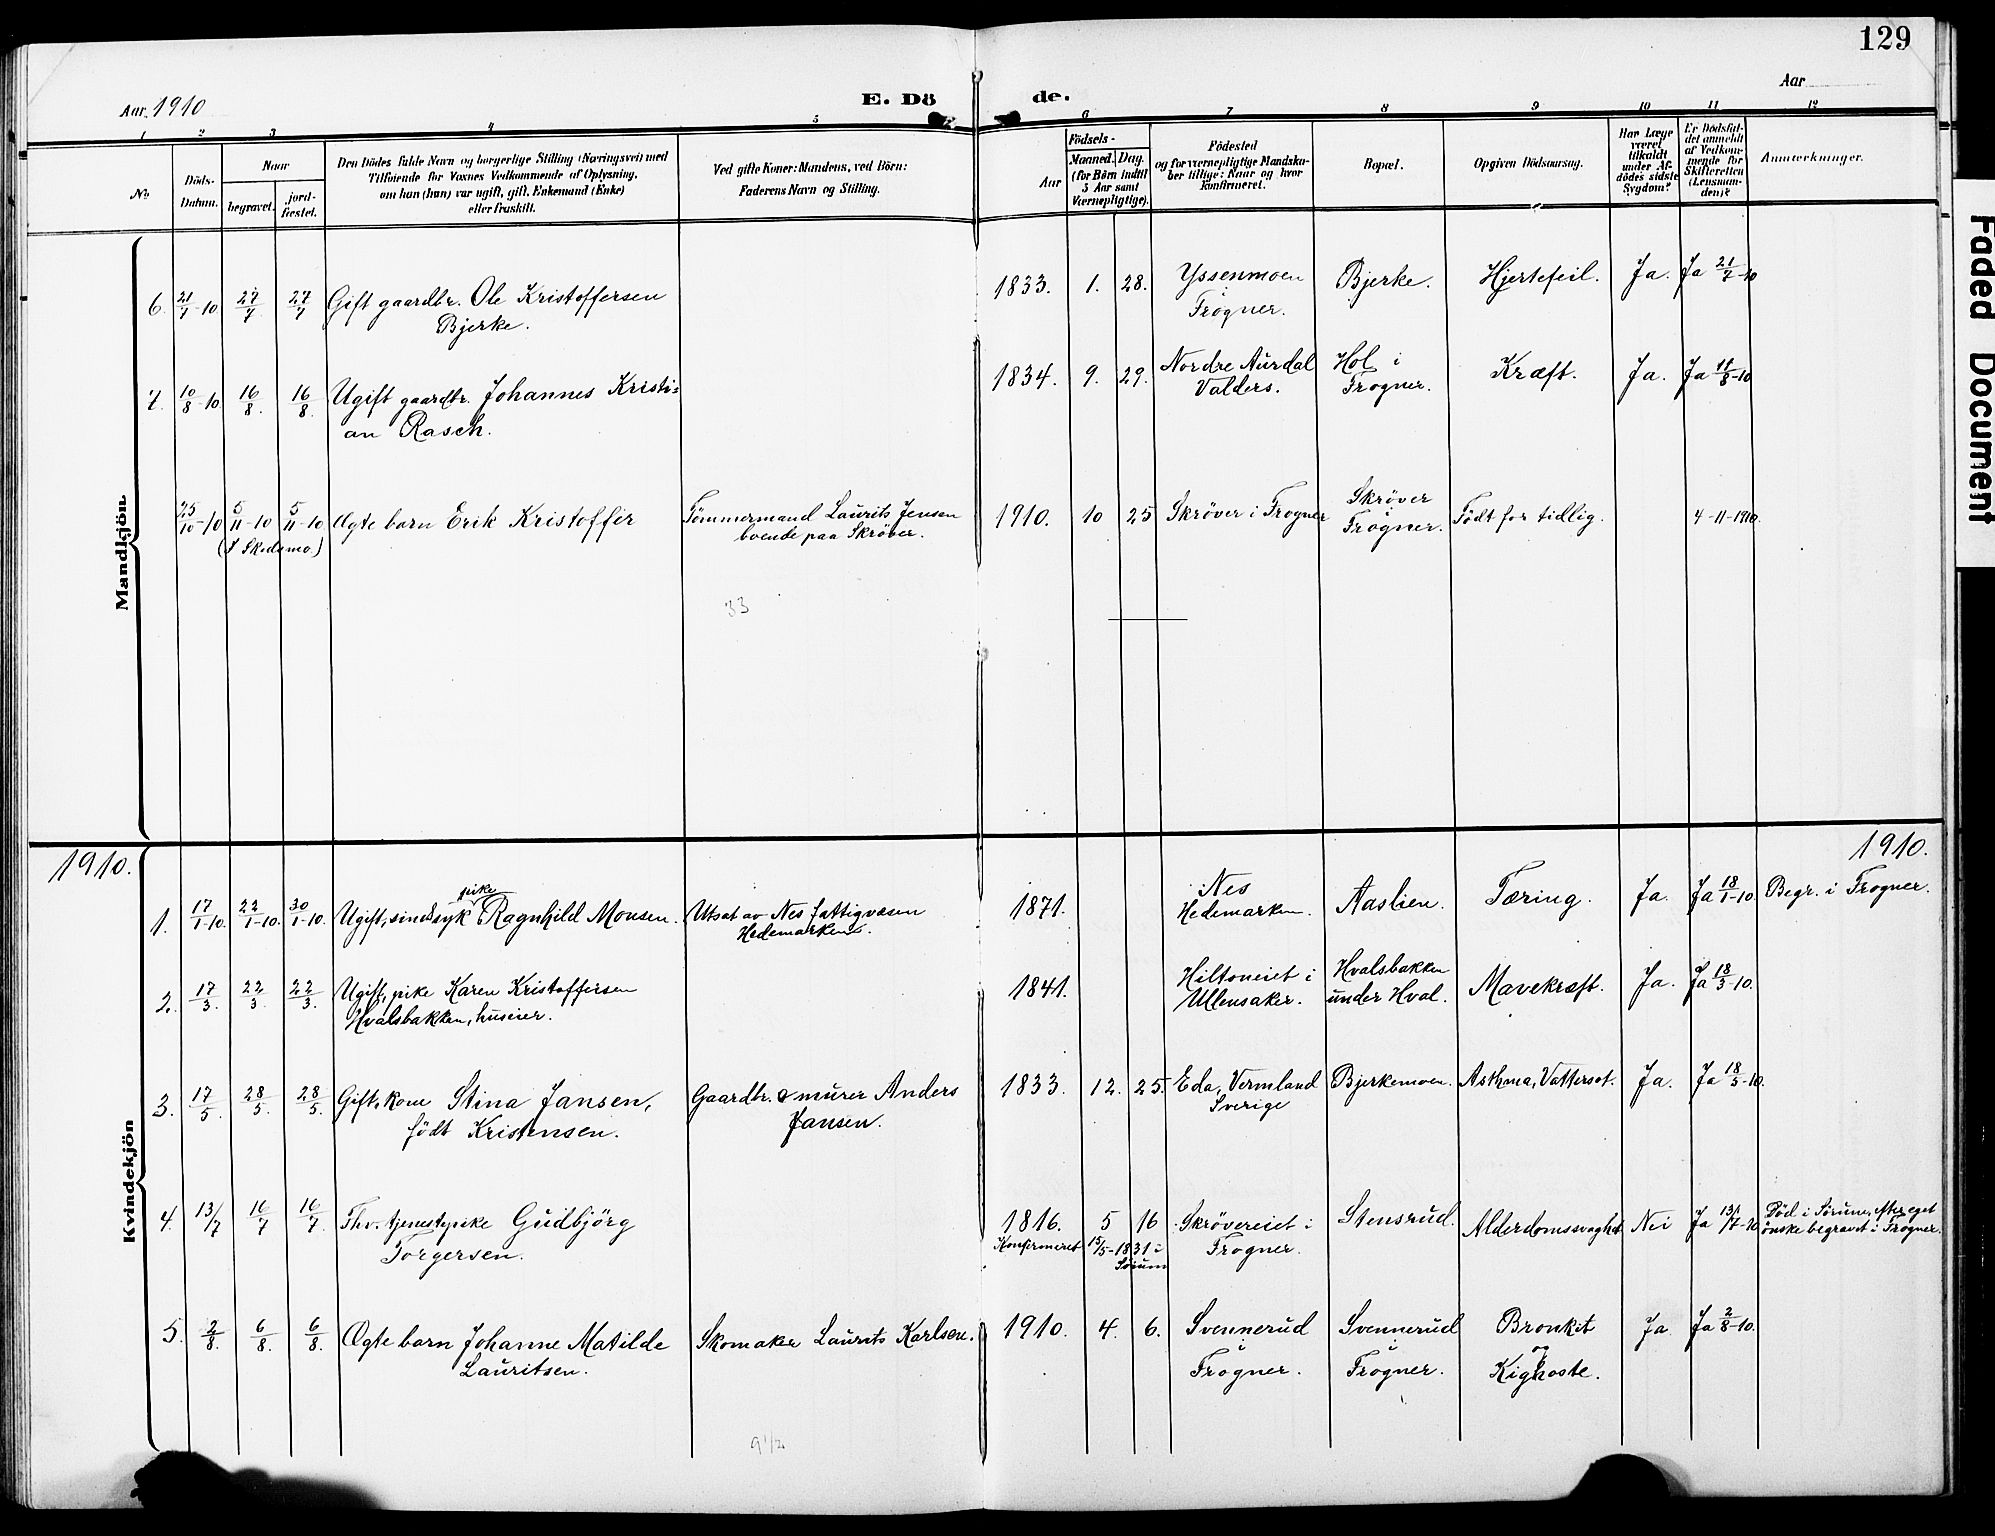 129
Aar 1910
E. Dö de.
Aar
1 2 3 4 5 6 7 8 9 10 11 12
No
Döds-Datum.
Naar
begravet.
jord-fæstet.
Den Dödes fulde Navn og borgerlige Stilling (Næringsvei) med
Tilföiende for Voxnes Vedkommende af Oplysning,
om han (hun) var ugift, gift, Enkemand (Enke)
eller fraskilt.
Ved gifte Koner: Mandens, ved Börn:
Faderens Navn og Stilling.
Födsels-
Aar
Maaned. Dag.
(for Börn indtil
5 Aar samt
Værnepligtige).
Födested
og for værnepligtige Mandska-
ber tillige: Naar og hvor
konfirmeret.
Bopæl.
Opgiven Dödsaarsag.
Har Læge
været
tilkaldt
under Af-
dödes sidste
Sygdom?
Er Dödsfal-
det anmeldt
af Vedkom-
mende for
Skifteretten
(Lensman-
den)?
Anmærkninger.
Mandkjön.
6. 21/7-10 27/7 27/7 Gift gaardbr. Ole Kristoffersen 1833. 1. 28. Yssenmoen Bjerke. Hjertefeil. Ja. Ja 21/7-10
Bjerke. Frogner.
7. 10/8-10 16/8. 16/8. Ugift gaardbr. Johannes Kristi= 1834. 9. 29. Nordre Aurdal Hol i Kræft. Ja. Ja 11/8-10
an Rasch. Valders. Frogner.
25/10-10 5/11-10 5/11-10 Ægte barn Erik Kristoffer Tömmermand Laurits Jensen 1910. 10 25 Skröver i Frogner Skröver Födt for tidlig. 4-11-1910.
(I Skedsmo) boende paa Skröver. Frogner.
33
1910. 1910.
Kvindekjön
1. 17/1-10. 22/1-10. 30/1-10. Ugift, sindssyk pike Ragnhild Monsen. Utsat av Nes fattigvæsen 1871. Nes Aaslien. Tæring. Ja. Ja 18/1-10. Begr. i Frogner.
Hedemarken. Hedemarken.
2. 17/3. 22/3. 22/3. Ugift, pike Karen Kristoffersen 1841. Hiltoneiet i Hvalsbakken Mavekræft. Ja. Ja 18/3-10.
Hvalsbakken, huseier. Ullensaker. under Hval.
3. 17/5. 28/5. 28/5. Gift, kone Stina Jansen, Gaardbr. & murer Anders 1833. 12. 25. Eda, Vermland Bjerkemoen. Asthma, Vattersot. Ja. Ja 18/5-10.
födt Kristensen. Jansen. Sverige
4. 13/7 16/7 16/7. Fhv. tjenestepike Gudbjörg 1816. 5 16 Skrövereiet i Stensrud. Alderdomssvaghet Nei Ja 13/7-10 Död i Sörum, efter eget
Torgersen. Konfirmeret 15/5-1831 i Frogner. önske begravet i Frogner.
Sörum
5. 2/8. 6/8. 6/8. Ægte barn Johanne Matilde Skomaker Laurits Karlsen. 1910. 4. 6. Svennerud Svennerud Bronkit Ja Ja 2/8-10.
Lauritsen. Frogner. Frogner. og
Kighoste.
9 1/2
Faded Document